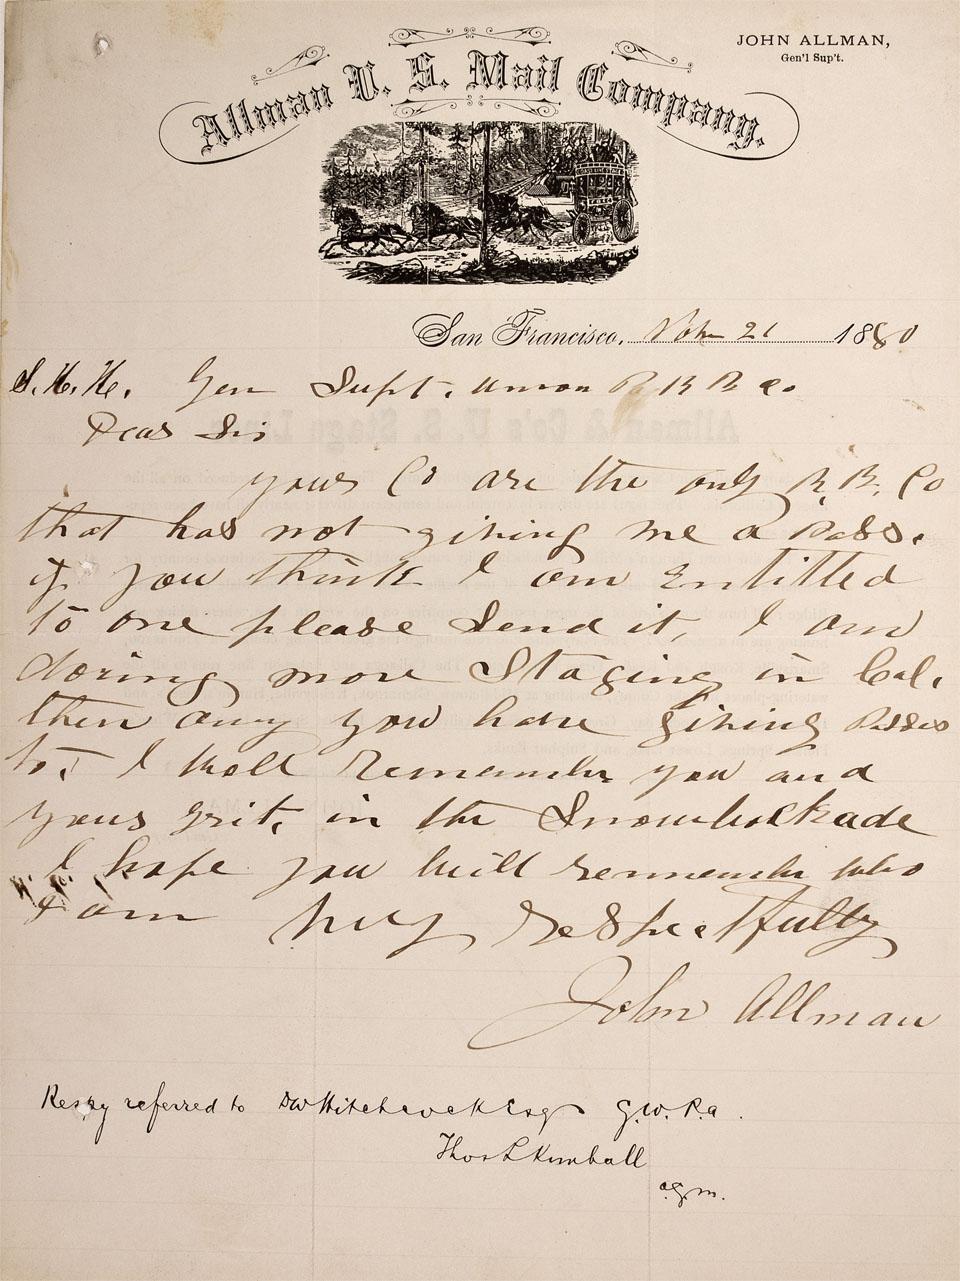 JOHN ALLMAN,
Gen'l Sup't.
Allman U. S. Mail Company.
San Francisco, 21 1880
S. H. H. Gen Supt. Union R R Co
Dear Sir
your Co are the only R. R. Co
that has not giving me a Pass.
if you think I am Entitled
to one please Send it, I am
doring more Staging in Cal.
then any you have giving Passes
to, I Well Remember you and
your grit, in the Snowblockade
I hope you will remember who
I am very Respectfully
John Allman
Respy referred to DW Hitchcock Esq G.W.P.a.
Thos L Kimball
a.g.m.